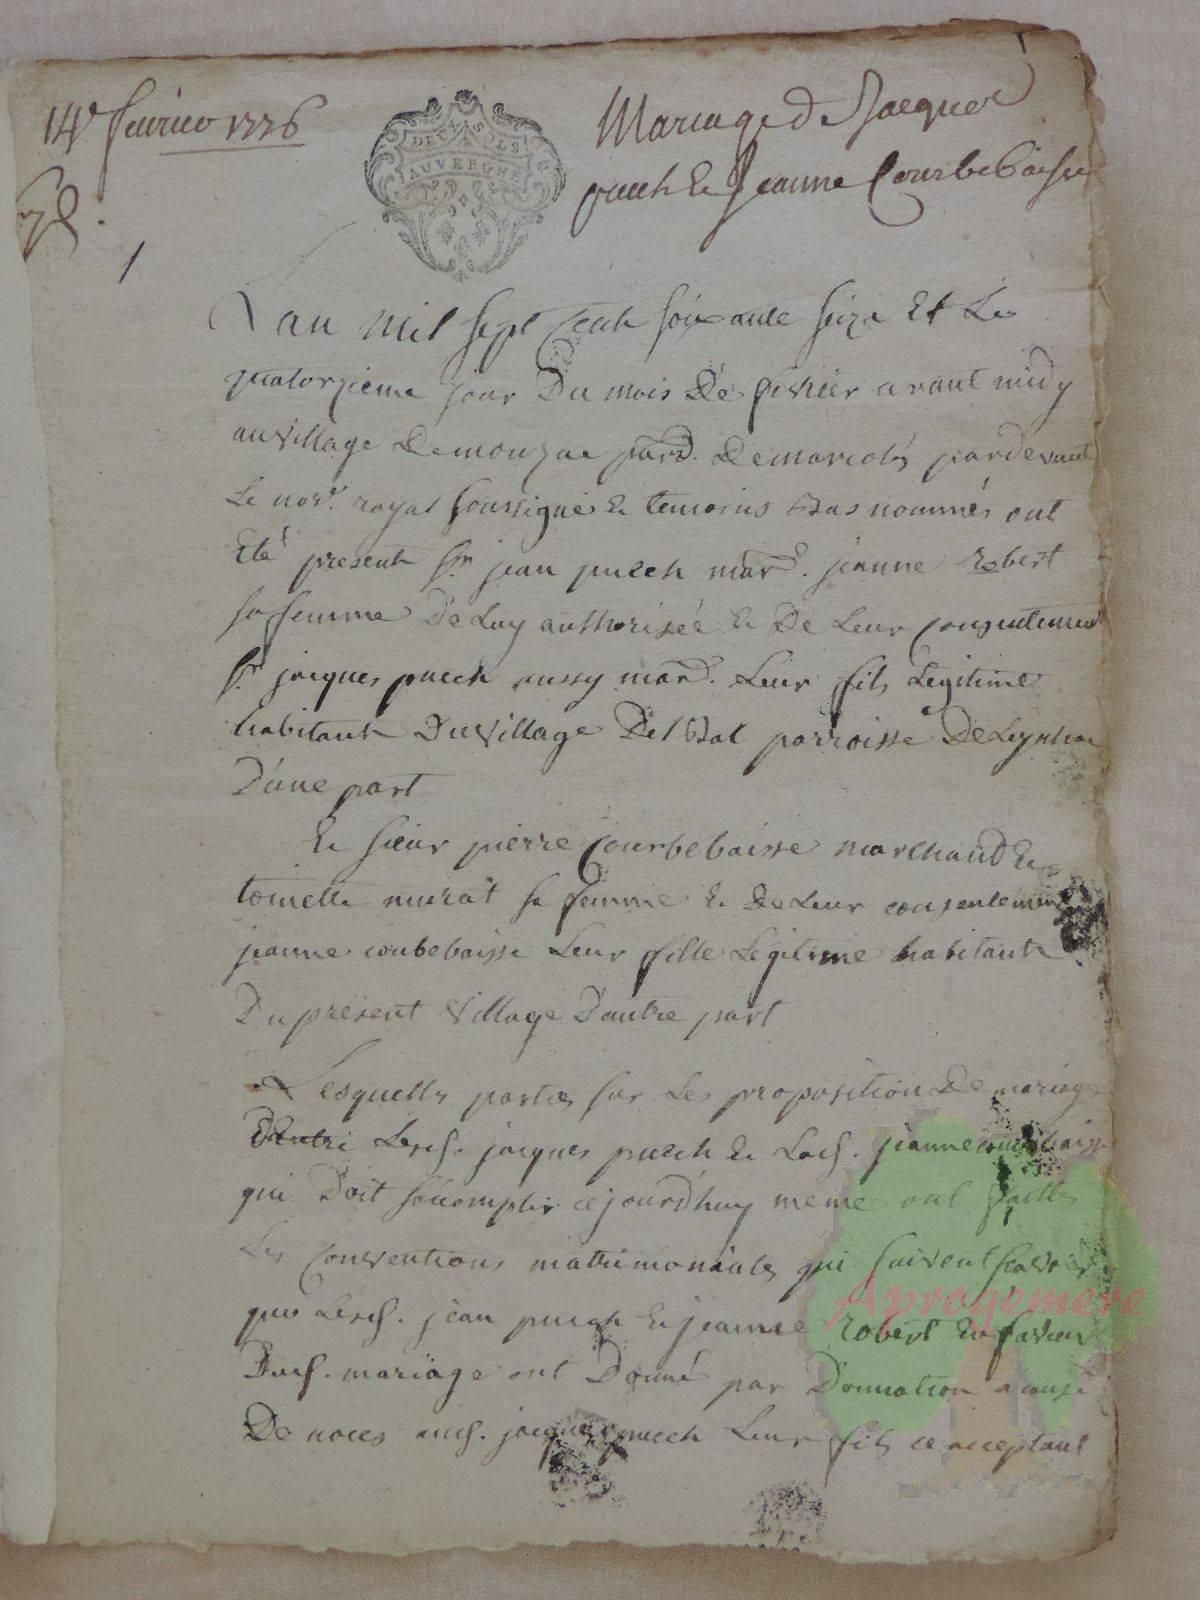 14e fevrier 1776
DEUX SOLS
AUVERGNE
Mariage de Jacques
puech & Jeanne Courbebaisse
1
L'an mil sept cent soixante seize Et Le
quatorzieme jour Du mois De fevrier avant midy
au village De monzac parr. De marcolés pardevant
Le nore. royal soussigné & temoins Bas nommés ont
Eté present Sr. jean puech mard. jeanne robert
sa femme De Luy authorisée & De Leur consentement
Sr. jacques puech aussy mard. Leur fils Legitime
habitants Du village Del Bat parroisse De Leynhac
D'une part
& sieur pierre Courbebaisse marchand &
toinette murat sa femme & De Leur consentement
jeanne coubebaisse Leur fille Legitime habitants
Du present village D'autre part
Lesquelles parties sur Les proposition De mariage
D'entre Lesd. jacques puech & Lad. jeanne
qui Doit saccomplir cejourd'huy meme ont faittes
Les Conventions matrimoniales qui suivent scavoir
que Lesd. jean puech & jeanne robert En faveur
Dud. mariage ont Donné par Donnation a cause
De noces aud. jacques puech Leur fils ce acceptant
Aprogemere